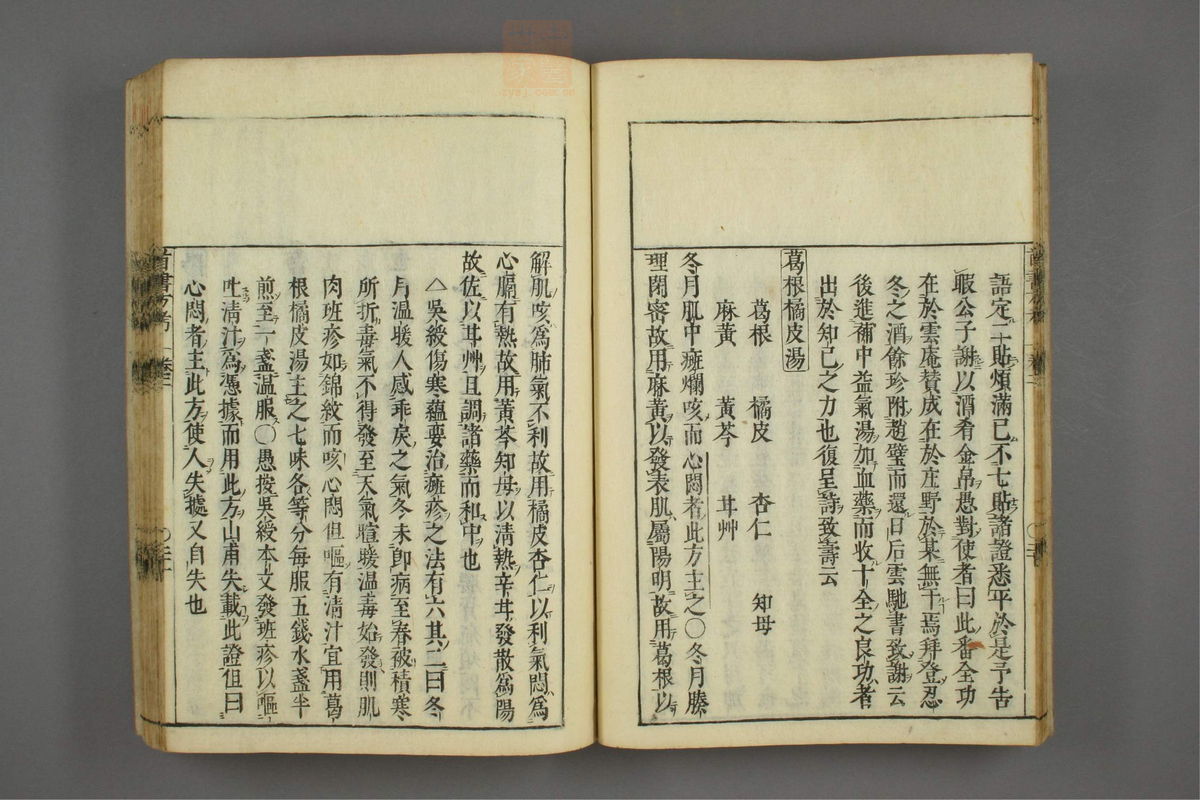 語定二貼煩滿已不七貼諸證悉平於是予告
暇公子謝以酒肴金帛愚對使者曰此番全功
在於雲庵贊成在於庄野於某無干焉拜登忍
冬之酒餘珍附趙璧而還日后雲馳書致謝云
後進補中益氣湯加血藥而收十全之良功者
出於知己之力也復呈詩致壽云
葛根橘皮湯
葛根 橘皮 杏仁 知母
麻黃 黃芩 甘艸
冬月肌中瘢爛咳而心悶者此方主之〇冬月腠
理閉密故用麻黃以發表肌屬陽明故用葛根以
解肌咳為肺氣不利故用橘皮杏仁以利氣悶為
心膈有熱故用黃芩知母以清熱辛甘發散為陽
故佐以甘艸且調諸藥而和中也
△吳綬傷寒蘊要治瘢疹之法有六其二曰冬
月温暖人感乖戾之氣冬未即病至春被積寒
所折毒氣不得發至天氣暄暖温毒始發則肌
肉班疹如錦紋而咳心悶但嘔有清汁宜用葛
根橘皮湯主之七味各等分每服五錢水盞半
煎至一盞温服〇愚按吳綬本文發班疹以嘔
吐清汁為憑據而用此方山甫失載此證但曰
心悶者主此方使人失據又自失也